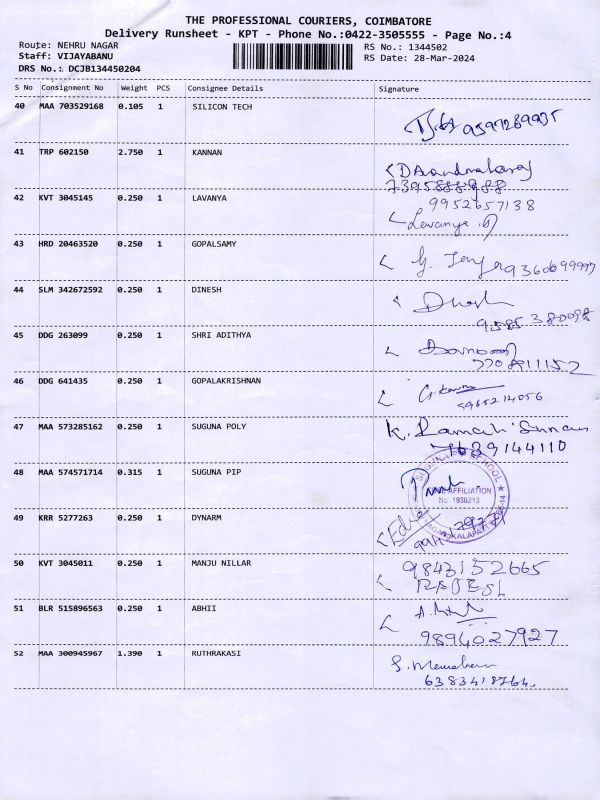 THE PROFESSIONAL COURIERS, COIMBATORE
Delivery Runsheet - KPT - Phone No.:0422-3505555 - Page No.:4
Route: NEHRU NAGAR
RS No.: 1344502
Staff: VIJAYABANU
RS Date: 28-Mar-2024
DRS No.: DCJB134450204
S No Consignment No Weight PCS Consignee Details Signature
40 MAA 703529168 0.105 1 SILICON TECH
9597289935
41 TRP 602150 2.750 1 KANNAN
42 KVT 3045145 0.250 1 LAVANYA
9952657138
43 HRD 20463520 0.250 1 GOPALSAMY
44 SLM 342672592 0.250 1 DINESH
9585380098
45 DDG 263099 0.250 1 SHRI ADITHYA
7708911152
46 DDG 641435 0.250 1 GOPALAKRISHNAN
9965214056
47 MAA 573285162 0.250 1 SUGUNA POLY
7639144110
48 MAA 574571714 0.315 1 SUGUNA PIP
AFFILIATION
No. 1930213
49 KRR 5277263 0.250 1 DYNARM
50 KVT 3045011 0.250 1 MANJU NILLAR
9843152665
51 BLR 515896563 0.250 1 ABHII
9894027927
52 MAA 300945967 1.390 1 RUTHRAKASI
6383418764